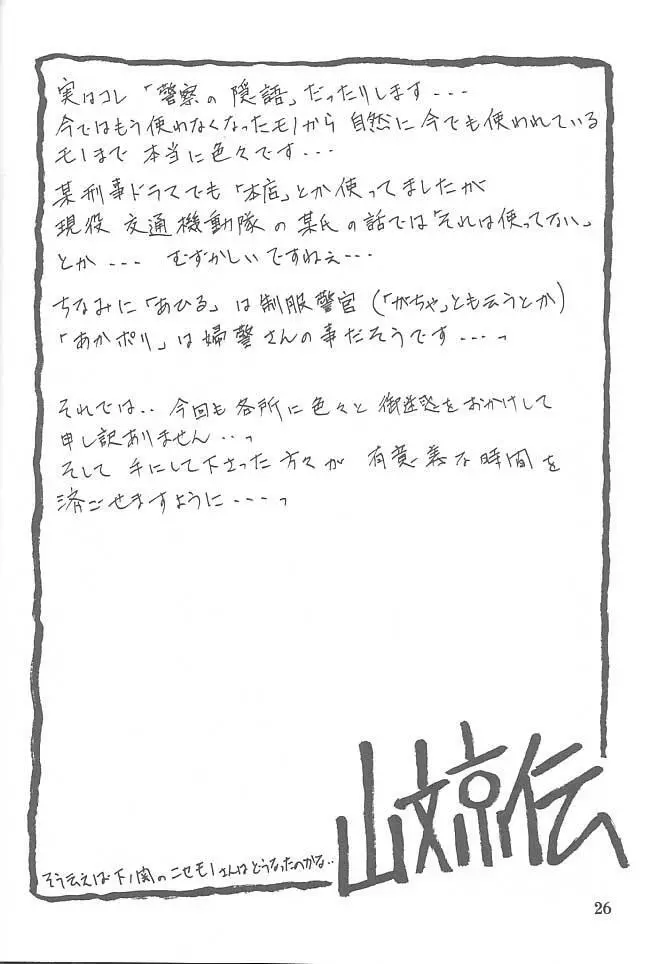 実はコレ「警察の隠語」だったりします---
今ではもう使われなくなったモノから 自然に今でも使われている
モノまで 本当に色々です---
某刑事ドラマでも「本店」とか使ってましたが
現役 交通機動隊の某氏の話では「それは使ってない」
とか--- むずかしいですねぇ---
ちなみに「あひる」は制服警官(「がちゃ」とも云うとか)
「あかポリ」は婦警さんの事だそうです---っ
それでは.. 今回も各所に色々と御迷惑をおかけして
申し訳ありません..っ
そして 手にして下さった方々が 有意義な時間を
済ごせますように---っ
山文京伝
そう云えば下ノ関のニセモノさんはどうなったのかな..
26